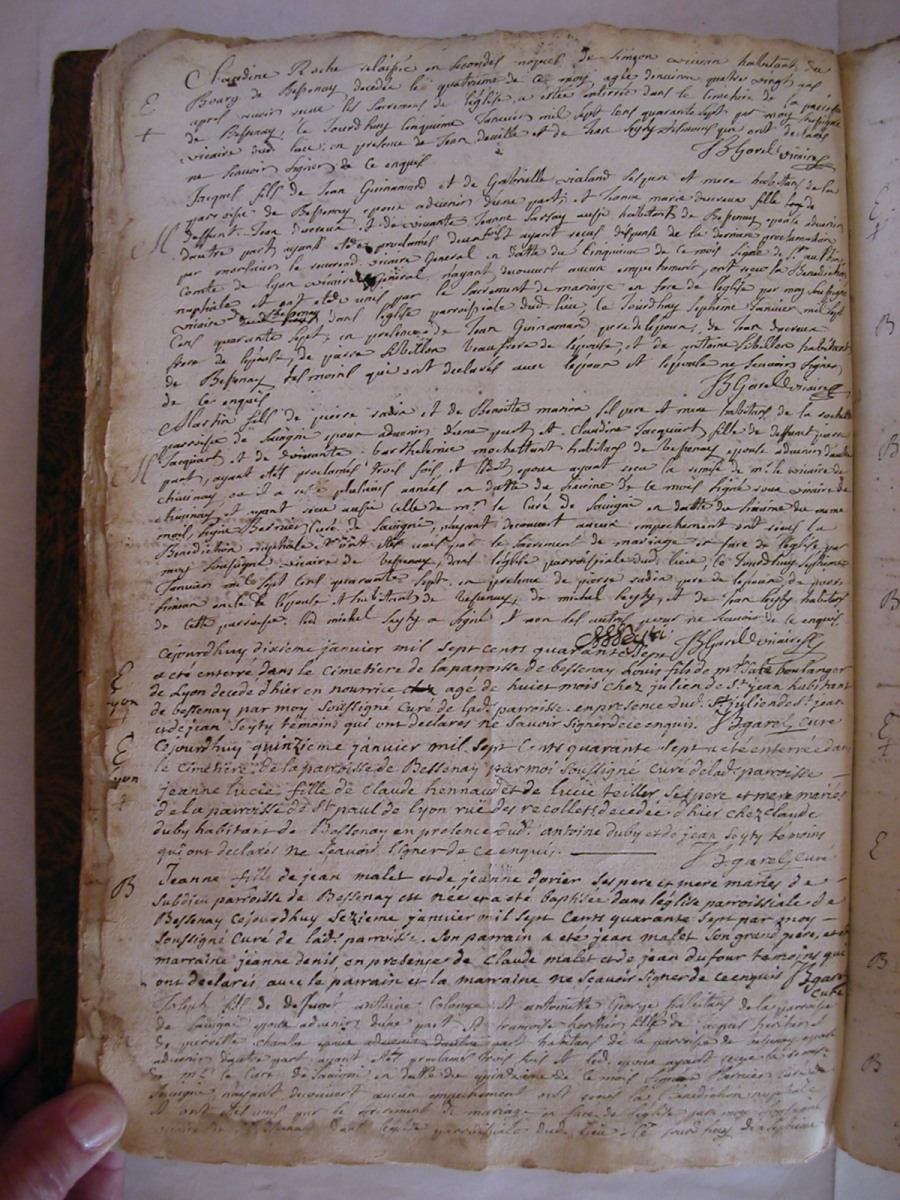 Claudine Roche relaissée en secondes nopces de vivant habitant du
Bourg de Bessenay decedée le quatrieme de ce moy, agée denviron quatre vingt ans
E apres avoir receu les sacremens de l'église, a estée enterrée dans le cimetiere de la paroisse
+ de Bessenay, le jourdhuy cinquieme Janvier mil sept cens quarante sept par moy soussigné
vicaire dud. lieu; en presence de Jean deville et de Jean Seyty qui ont declarés
ne scavoir signer de ce enquis
JBGarel vicaire
Jacques fils de Jean Guinamard et de Gabrielle vialand ses pere et mere habitans de la
paroisse de Bessenay epoux advenir dune part; et Jeanne marie ducreux fille de
M deffunt Jean ducreux et de vivante Jeanne aussy habitants de Bessenay epouse advenir
dautre part ayant etés proclamés deux fois ayant receus dispense de la derniere proclamation
par monsieur le vicaire General en datte du cinquieme de ce mois signé de St aubin
Comte de Lyon vicaire General, nayant decouvert aucun empechement, ont receu la Benediction
nuptiale et ont etés unis par le sacrement de mariage en face de leglise par moy soussigné
vicaire dans leglise paroissiale dud. lieu, le jourdhuy septieme Janvier mil sept
cens quarante sept, en presence de Jean Guinamard pere de lepoux, de Jean ducreux
frere de lepouse, de pierre beau frere de lepouse, et de antoine habitant
de Bessenay temoins qui ont declarés avec lepoux et lepouse ne scavoir signer
de ce enquis
JBGarel vicaire
Martin fils de pierre sadin et de Benoite marion ses pere et mere habitans de la
paroisse de Savigny epoux advenir dune part, et Claudine Jacquart fille de deffunt pierre
M Jacquart et de vivante barthelemie mochettant habitans de Bessenay epouse advenir dautre
part, ayant etés proclamés trois fois et led. epoux ayant receu la remise de mr. le vicaire de
ou il a resté plusieurs années en datte du sixieme de ce mois signé vicaire de
et ayant receu aussy celle de mr. le Curé de Savigni en datte du sixieme du meme
mois, signé Bernier Curé de Savigni, nayant decouvert aucun empechement ont receus la
Benediction nuptiale et ont etés unis par le sacrement de mariage en face de leglise, par
moy soussigné vicaire de Bessenay, dans leglise parroissiale dud. lieu, le Jourdhuy septieme
Janvier mil sept cens quarante sept. en presence de pierre sadin pere de lepoux, de pierre
oncle de lepouse et habitant de Bessenay, de michel Seyty, et de Jean Seyty habitans
de cette paroisse. led. michel Seyty a signé et non les autres pour ne scavoir de ce enquis.
MSeyty JBGarel vicaire
Cejourdhuy dixsieme janvier mil sept cents quarante sept
E a eté enterré dans le cimetière de la parroisse de bessenay Louis fils de mr. boulanger
Lyon de Lyon decedé d'hier en nourrice agé de huiet mois chez julien de St. jean habitant
+ de bessenay par moy soussigné curé de lad. parroisse en presence dud. julien de St. jean
et de jean Seyty temoins qui ont declarés ne scavoir signer de ce enquis. JBgarel Curé
E Cejourdhuy quinzieme janvier mil sept cents quarante sept a eté enterrée dans
Lyon le cimetiére de la parroisse de Bessenay par moi soussigné curé de lad. parroisse
+ jeanne lucie fille de claude hennaud et de lucie teiller ses pere et mere mariés
de la parroisse de St. paul de Lyon ruë des recollets decedée d'hier chez claude
duby habitant de Bessenay en presence dud. antoine duby et de jean Seyty temoins
qui ont declarés ne scavoir signer de ce enquis.
JBgarel Curé
B Jeanne fille de jean malet et de jeanne dorier ses pere et mere mariés de
Subdieu parroisse de Bessenay est née et a eté baptisée dans l'église parroissiale de
Bessenay cejourdhuy sezieme janvier mil sept cents quarante sept par moy
soussigné Curé de lad. parroisse. Son parrain a eté jean malet son grand pere, et sa
marraine jeanne denis, en presence de claude malet et de jean dufour temoins qui
ont declarés avec le parrain et la marraine ne scavoir signer de ce enquis JBgarel
Curé
Joseph fils de deffunt antoine Colonge et antoinette George habitans de la paroisse
de Savigni epoux advenir dune part, et francoise fille de Jacques
de pierrette part habitans de la paroisse de Bessenay epouse
advenir dautre part, ayant etés proclamés trois fois et led. epoux ayant receu la remise
de mr. le Curé de Savigni en datte du quinzieme de ce mois signé Bernier Curé de
Savigni, nayant decouvert aucun empechement ont receus la Benediction nuptiale
et ont etés unis par le sacrement de mariage en face de leglise par moy soussigné
vicaire de Bessenay dans leglise parroissiale dud. lieu le Jourdhuy dixseptieme
E
+
B
B
B
E
+
E
B
B